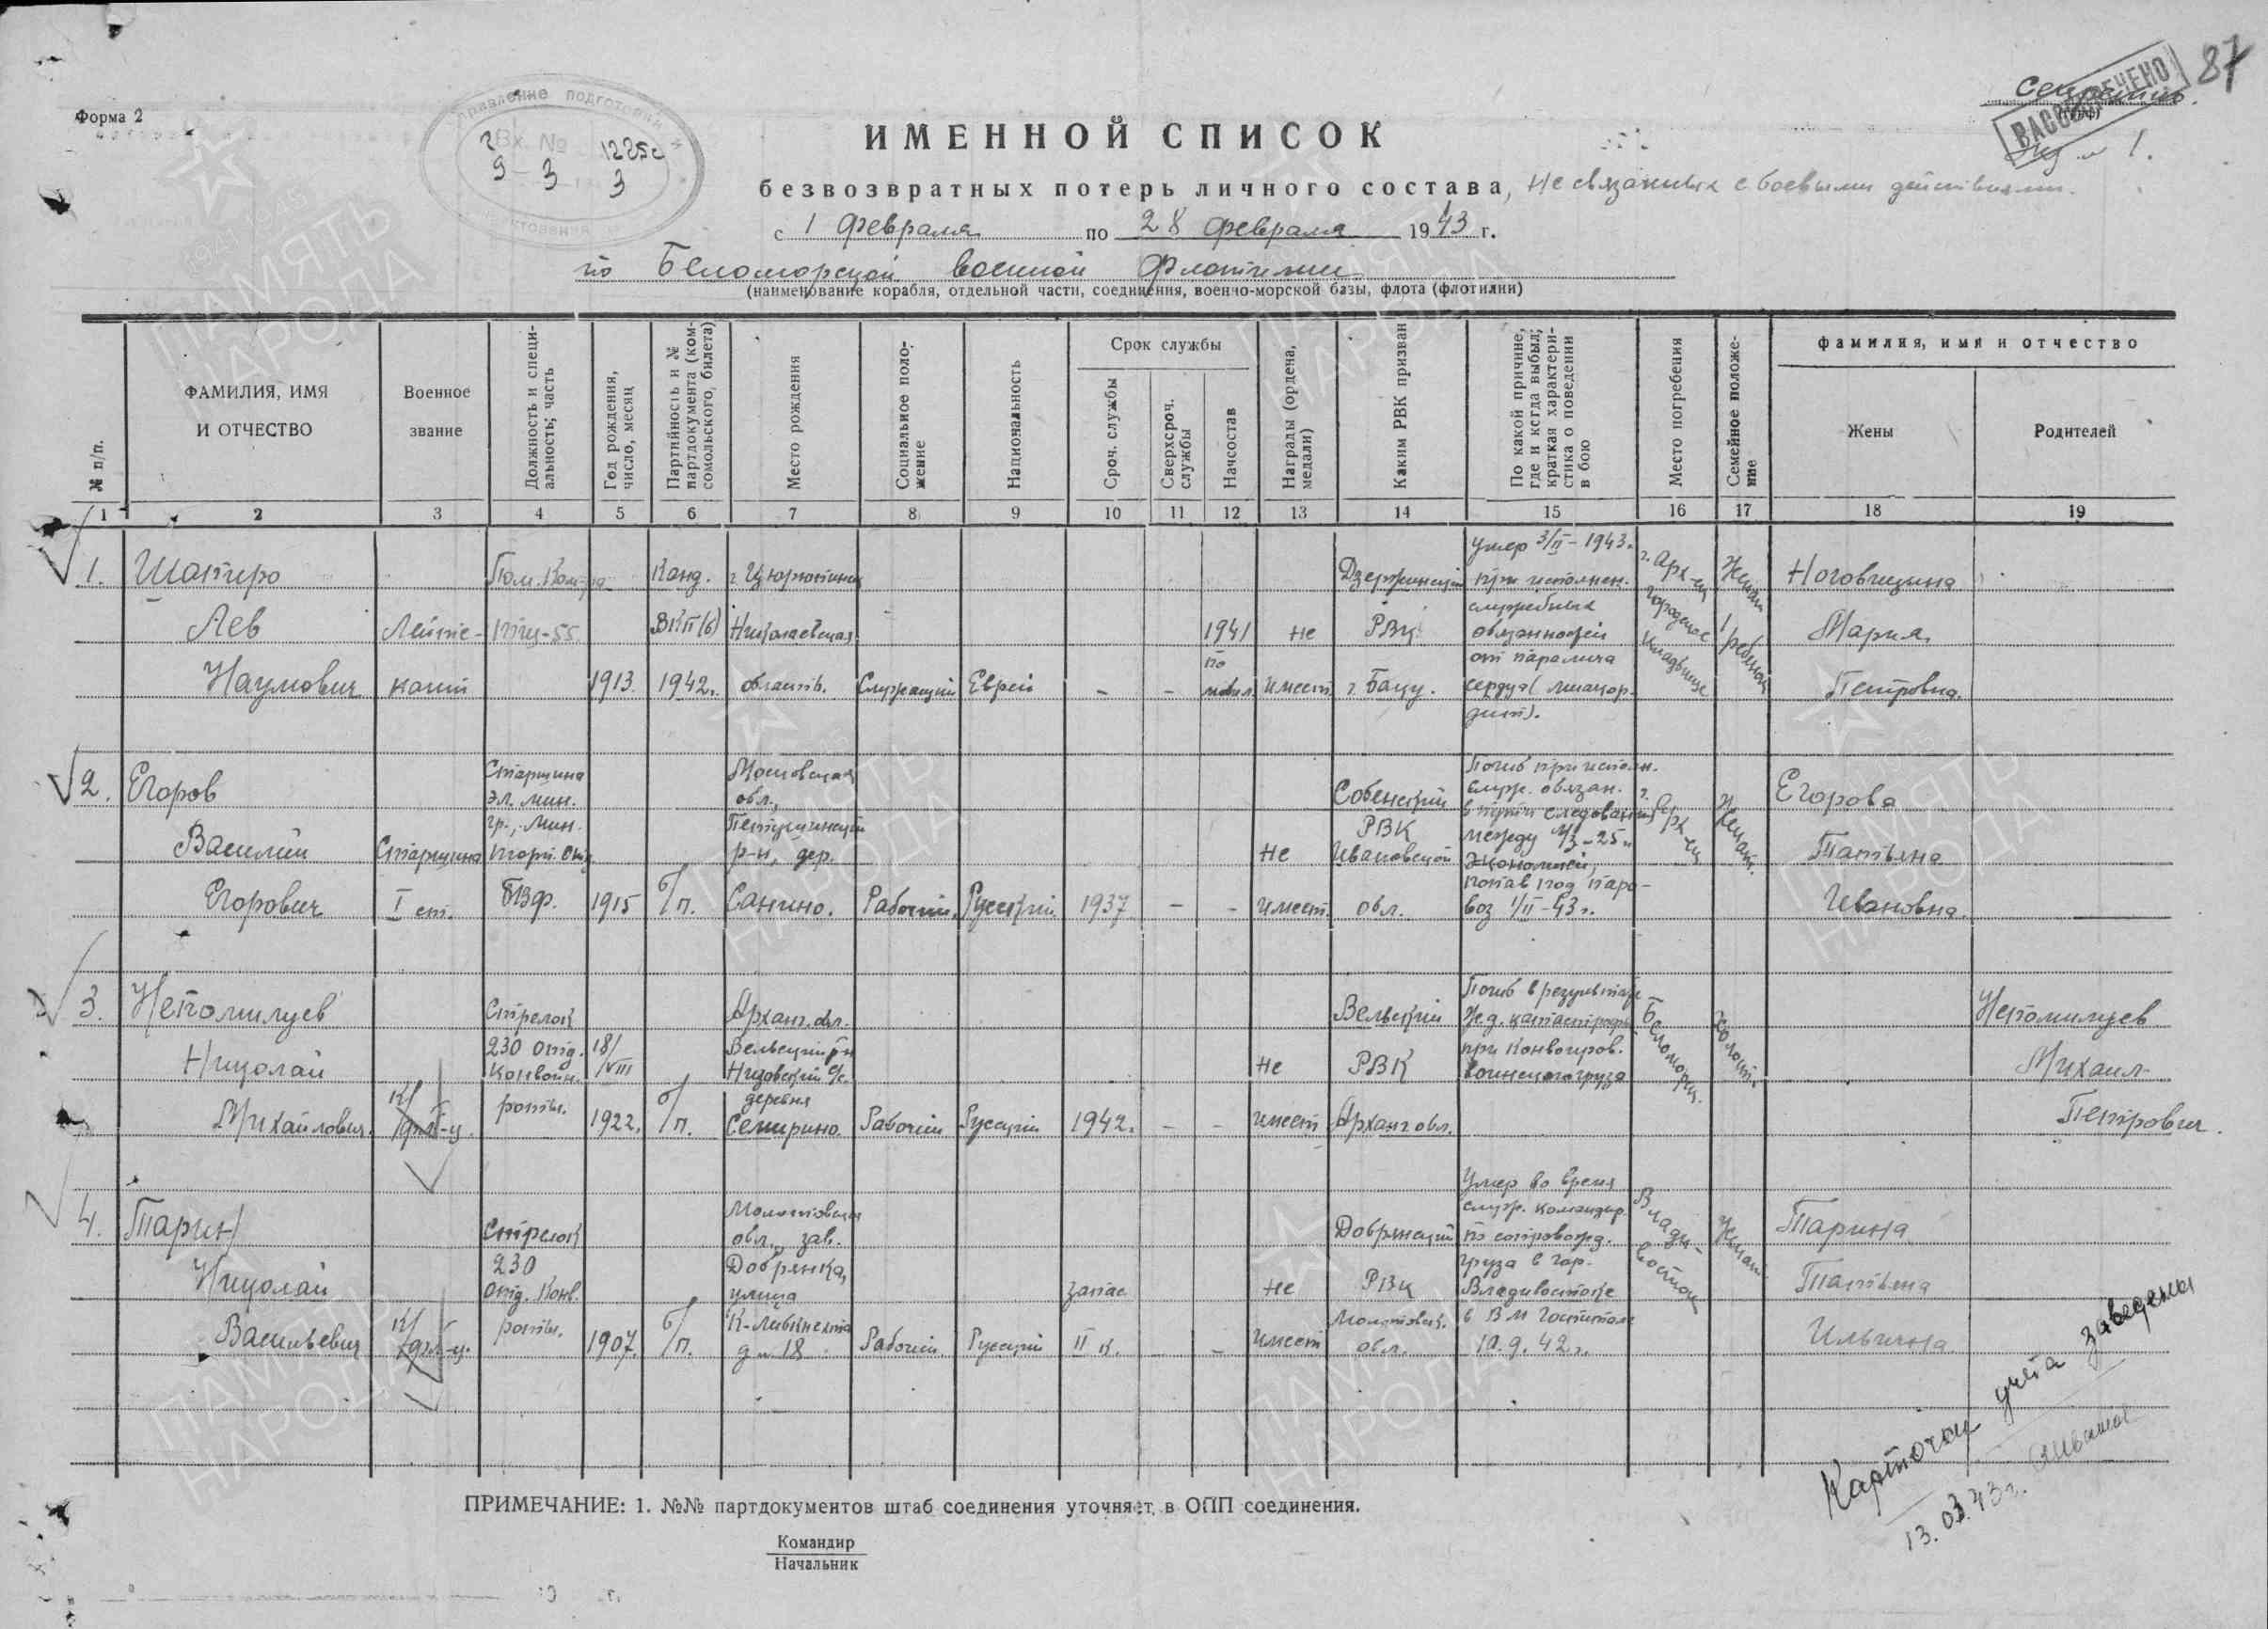 87
Секретно.
(гриф)
РАССЕКРЕЧЕНО
Форма 2
Управление подготовки и
Вх. №
1225с
9 - 3 3
ИМЕННОЙ СПИСОК
1.
безвозвратных потерь личного состава, не связанных с боевыми действиями.
с 1 февраля по 28 февраля 1943 г.
по Беломорской военной флотилии
(наименование корабля, отдельной части, соединения, военно-морской базы, флота (флотилии)
№ п/п.
ФАМИЛИЯ, ИМЯ И ОТЧЕСТВО
Военное звание
Должность и специальность; часть
Год рождения, число, месяц
Партийность и № партдокумента (комсомольского, билета)
Место рождения
Социальное положение
Национальность
Срок службы
Сроч. службы
Сверхсроч. службы
Начсостав
Награды (ордена, медали)
Каким РВК призван
По какой причине, где и когда выбыл; краткая характеристика о поведении в бою
Место погребения
Семейное положение
фамилия, имя и отчество
Жены
Родителей
1 2 3 4 5 6 7 8 9 10 11 12 13 14 15 16 17 18 19
1. Шапиро Лев Наумович
Лейтенант
Пом. Ком-ра
ТТЩ-55
1913
Канд. ВКП(б) 1942г.
Николаевская область.
Служащий
Еврей
- -
1941 по мобил.
не имеет
Дзержинский РВК г. Баку.
Умер 3/II-1943г. при исполнен. служебных обязанностей от паралича сердца (миакордит).
г. Арх-ск городское кладбище
Женат 1 ребенок
Ноговицина Мария Петровна.
2. Егоров Василий Егорович
Старшина I ст.
Старшина эл. мин. гр., мин.
БВФ.
1915
б/п.
Московская обл., Петушинский р-н, дер. Санино.
Рабочий.
Русский
1937
- -
Не имеет.
Собинский РВК Ивановской обл.
Погиб при исполн. служ. обязан. в пути следования между
Экономией, попав под паровоз 1/II-43г.
г. Арх-ск
Женат.
Егорова Татьяна Ивановна.
3. Непомилуев Николай Михайлович.
К/ фл-ц.
Стрелок 230 отд. конвойн. роты.
18/VIII 1922.
б/п.
Арханг. обл. Вельский р-н Низовский с/с. деревня Семирино.
Рабочий
Русский
1942.
- -
Не имеет
Вельский РВК Арханг обл.
Погиб в результате ж.д. катастрофы при конвоиров. воинского груза
Беломорск.
Холост.
Непомилуев Михаил Петрович.
4. Тарин Николай Васильевич
К/ фл-ц.
Стрелок 230 отд. Конв. роты.
1907.
б/п.
Молотовская обл., зав. Добрянка, улица К-Либкнехта д. № 18
Рабочий
Русский
Запас II к.
-
Не имеет
Добрянский РВК Молотовск. обл.
Умер во время служ. командир. по сопровожд. груза в гор. Владивостоке в ВМ Госпитале 10.9.42г.
Владивосток
Женат
Тарина Татьяна Ильинна
Карточки учета заведены
13.03.43г.
ПРИМЕЧАНИЕ: 1. №№ партдокументов штаб соединения уточняет, в ОПП соединения.
Командир
Начальник
ПАМЯТЬ НАРОДА